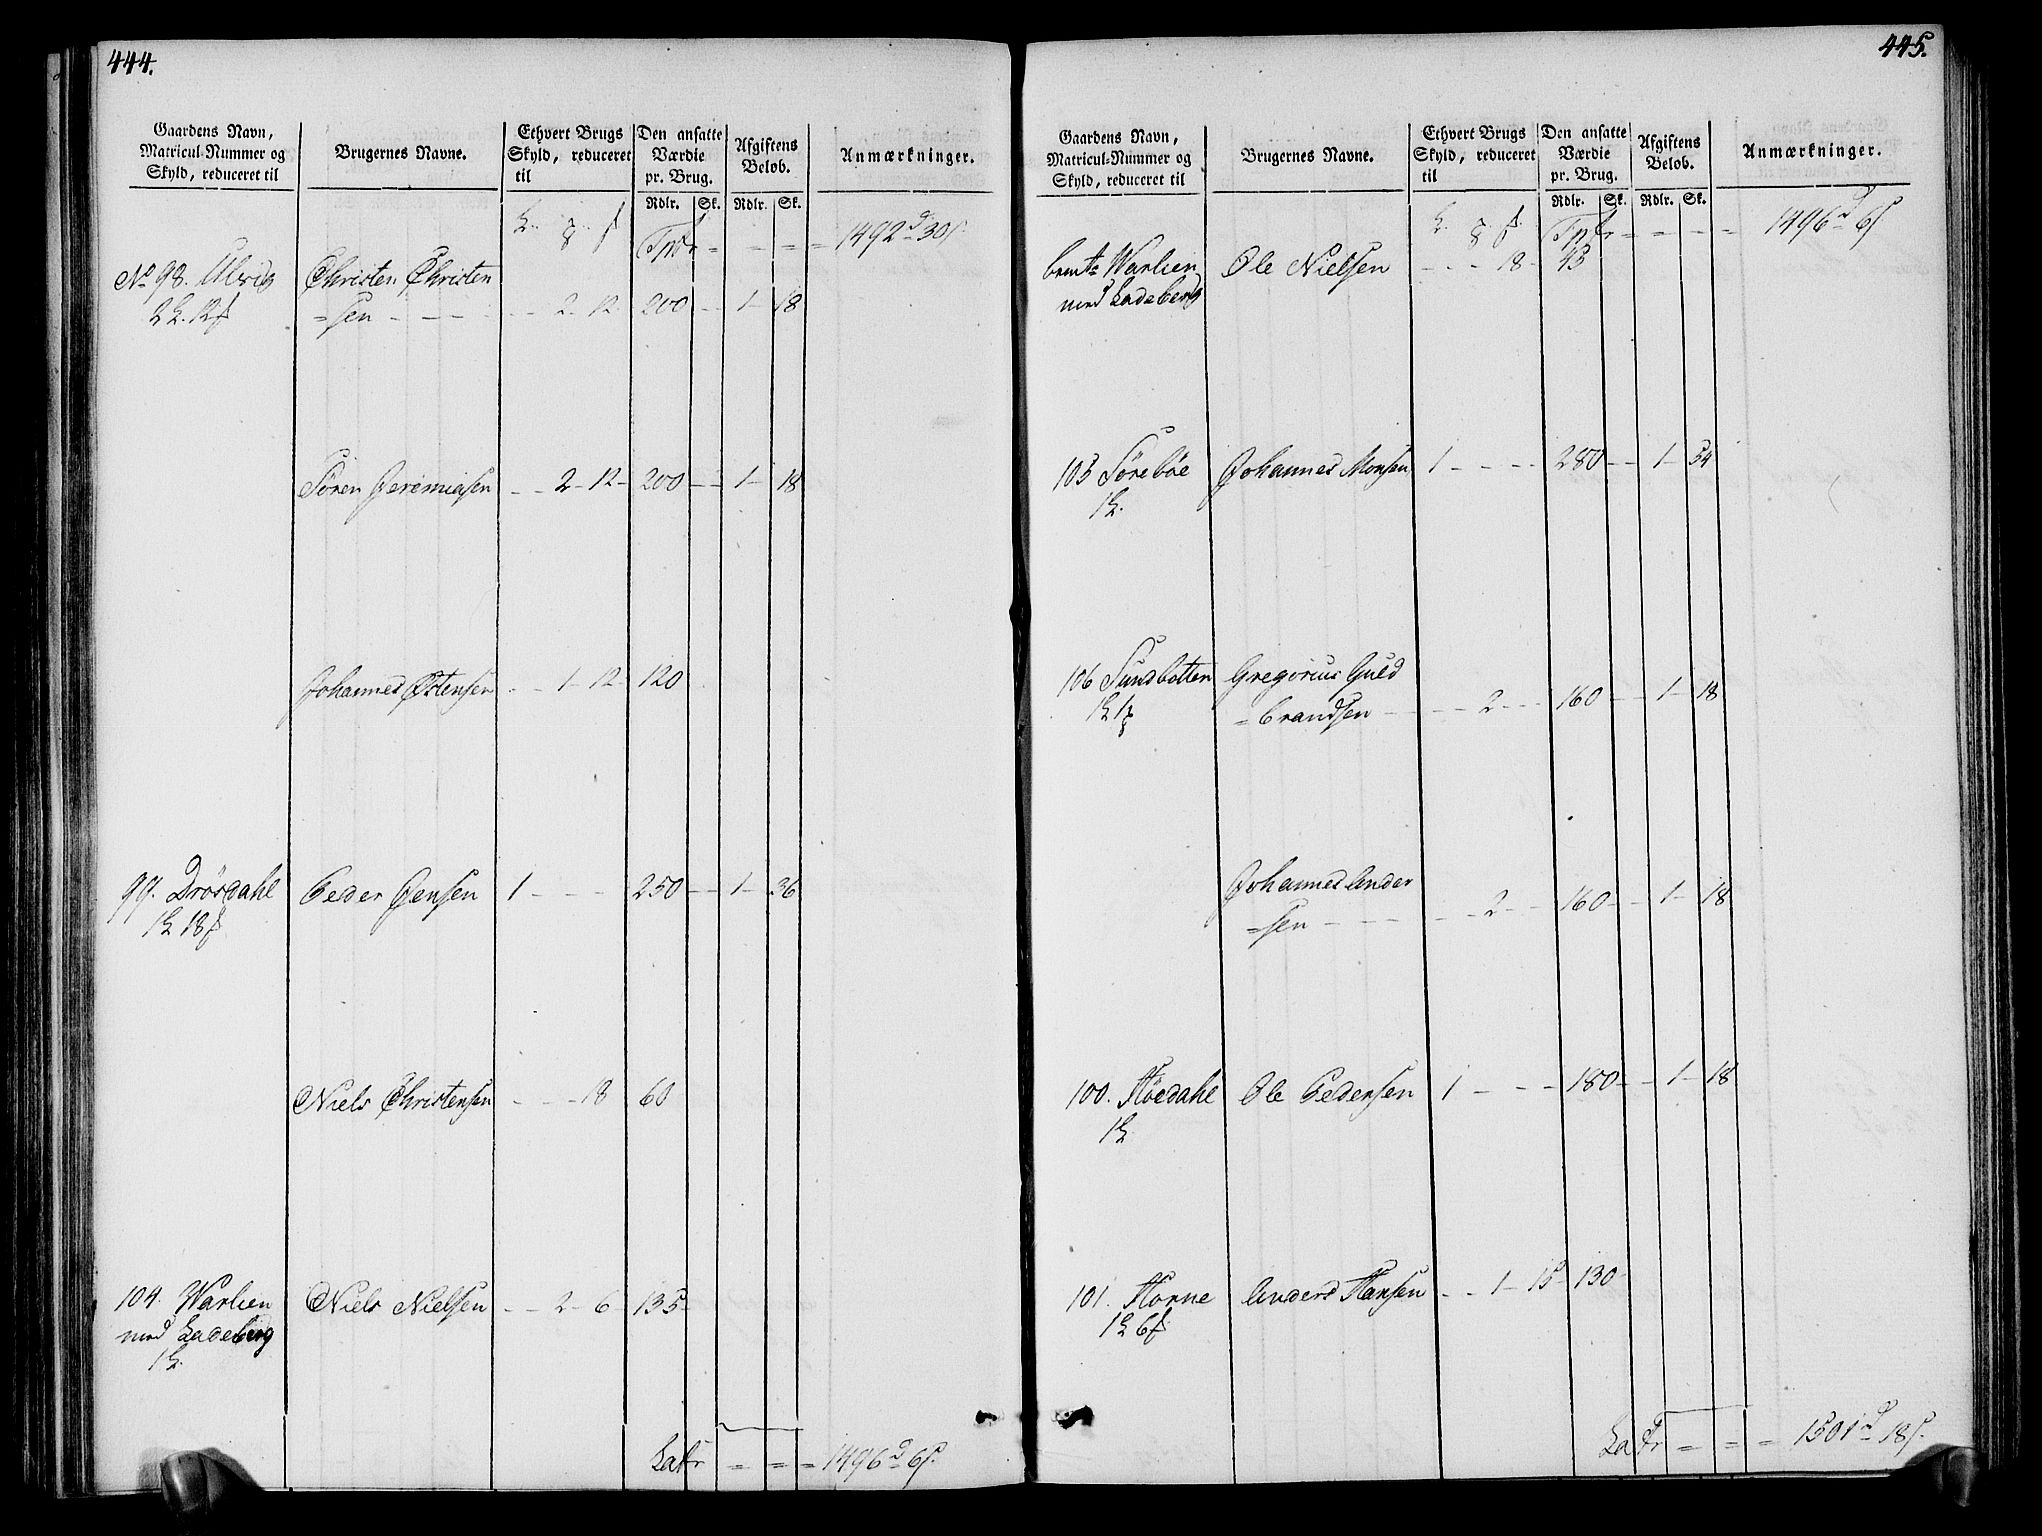 444.
Gaardens Navn, Matricul-Nummer og Skyld, reduceret til
Brugernes Navne.
Ethvert Brugs Skyld, reduceret til
Den ansatte Værdie pr. Brug.
Afgiftens Beløb.
Anmærkninger.
Rdlr. Sk. Rdlr. Sk.
Tpor = = = = 1492 d 30 s.
No 98. Ulvig Christen Christen
2 L. 12 s =sen - - - - - 2 - 12 200 - - 1 - 18
Søren Jeremiassen - - 2 - 12 - 200 - - 1 - 18
Johannes Østensen - - 1 - 12 - 120
99. Drösdahl Peder Jensen 1 - - - 250 - - 1 - 36
1 L 18 s
Niels Christensen - - - 18 60
104. Warlien Niels Nielsen - - 2 - 6 - 135
med Ladeberg
1 L.
Latr = = = 1496 d 6 s.
445.
Gaardens Navn, Matricul-Nummer og Skyld, reduceret til
Brugernes Navne.
Ethvert Brugs Skyld, reduceret til
Den ansatte Værdie pr. Brug.
Afgiftens Beløb.
Anmærkninger.
Rdlr. Sk. Rdlr. Sk.
Tpr = = = = 1496 d 6 s
bemte Warlien Ole Nielsen - - - 18 - 45
med Ladeberg
105 Sørebøe Johannes Monsen 1 - - - - 280 - - 1 - 54
1 L.
106 Sundbotten Gregorius Guld
1 L =brandsen - - - 2 - - - 160 - - 1 - 18
Johannes Ander
=sen - - - - - 2 - - 160 - - 1 - 18
100. Høedahl Ole Pedersen 1 - - - 180 - - 1 - 18
1 L
101. Horne Anders Hansen - - 1 - 15 - 130
1 L 6 s
La Tr = = = 1501 d 18 s.